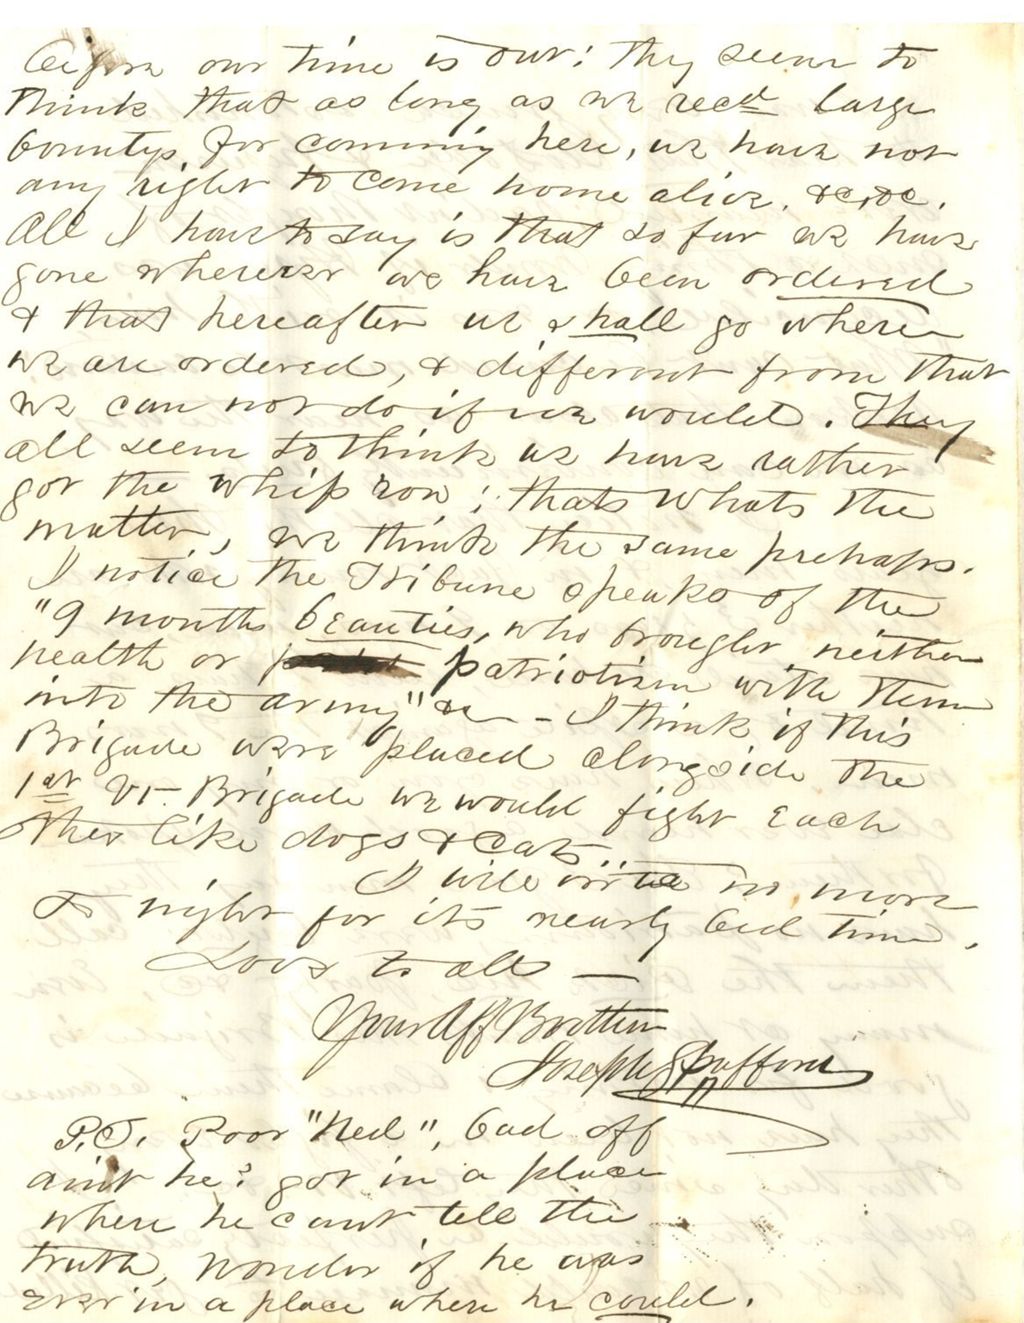 before our time is out; they seem to
think that as long as we recd large
bountys, for coming here, we have not
any right to come home alive. &c, &c.
All I have to say is that so far we have
gone wherever we have been ordered
& that hereafter we shall go where
we are ordered, & different from that
we can not do if we would. They
all seem to think we have rather
got the whip row; thats whats the
matter, we think the same prehaps.
I notice the Tribune speaks of the
"9 months beauties, who brought neither
health or patriotism with them
into the army" &c - I think if this
Brigade were placed alongside the
1st Vt. Brigade we would fight each
other like dogs & cats.
I will write no more
to night for its nearly bed time.
Love to all —
Your Aff Brother
Joseph Spafford
P.S. Poor "Ned", bad off
aint he? got in a place
where he cant tell the
truth, wonder if he was
ever in a place where he could.